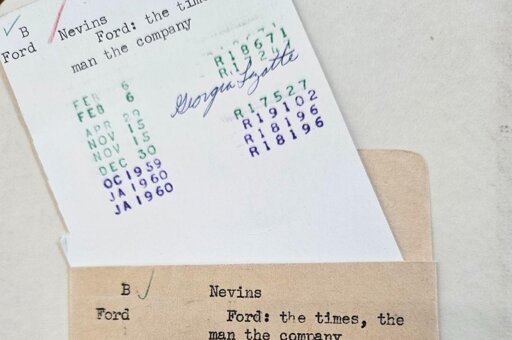 B Nevins
Ford Ford: the times
man the company
FEB 6
FEB 6
APR 29
NOV 15
NOV 15
DEC 30
OC 1959
JA 1960
JA 1960
R18671
Georgia
R17527
R19102
R18196
R18196
B Nevins
Ford Ford: the times, the
man the company